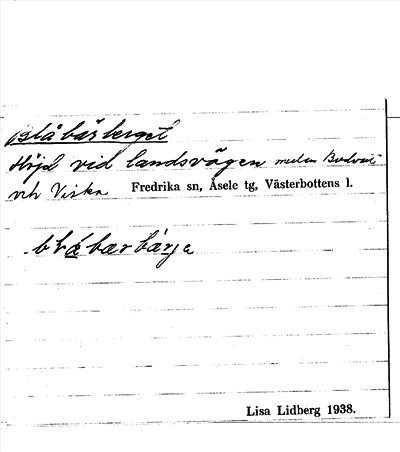 Blåbärsberget
Höjd vid landsvägen mellan
och Viska Fredrika sn, Åsele tg, Västerbottens l.
Lisa Lidberg 1938.